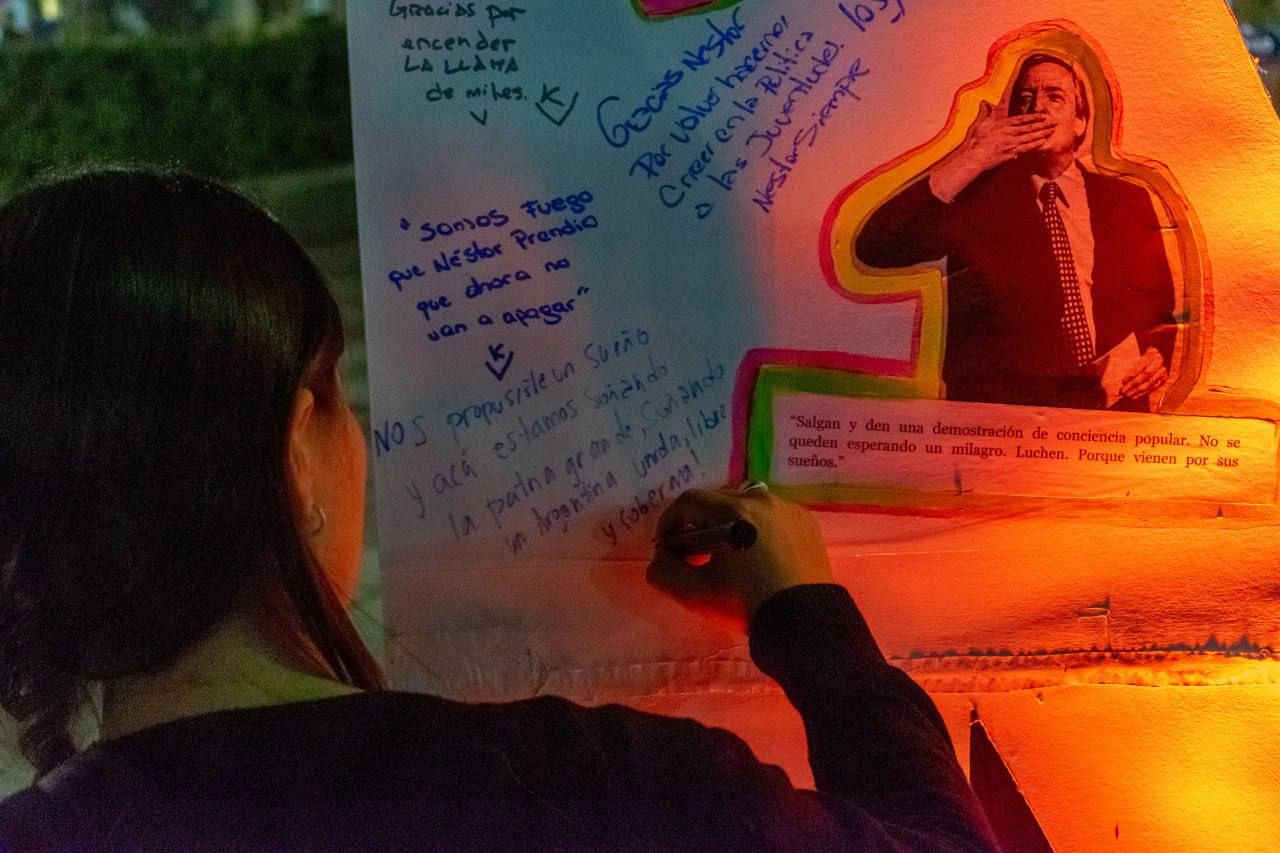 Gracias por
encender
LA LLAMA
de miles.
K
Gracias Nestor
Por volver hacernos
Creer en la Politica
a las Juventudes. los
Nestor Siempre
"Somos Fuego
que Néstor Prendio
que ahora no
van a apagar"
K
NOS propusiste un sueño
y acá estamos soñando
la patria grande, Soñando
un Argentina unida, libre
y soberana!
"Salgan y den una demostración de conciencia popular. No se
queden esperando un milagro. Luchen. Porque vienen por sus
sueños."